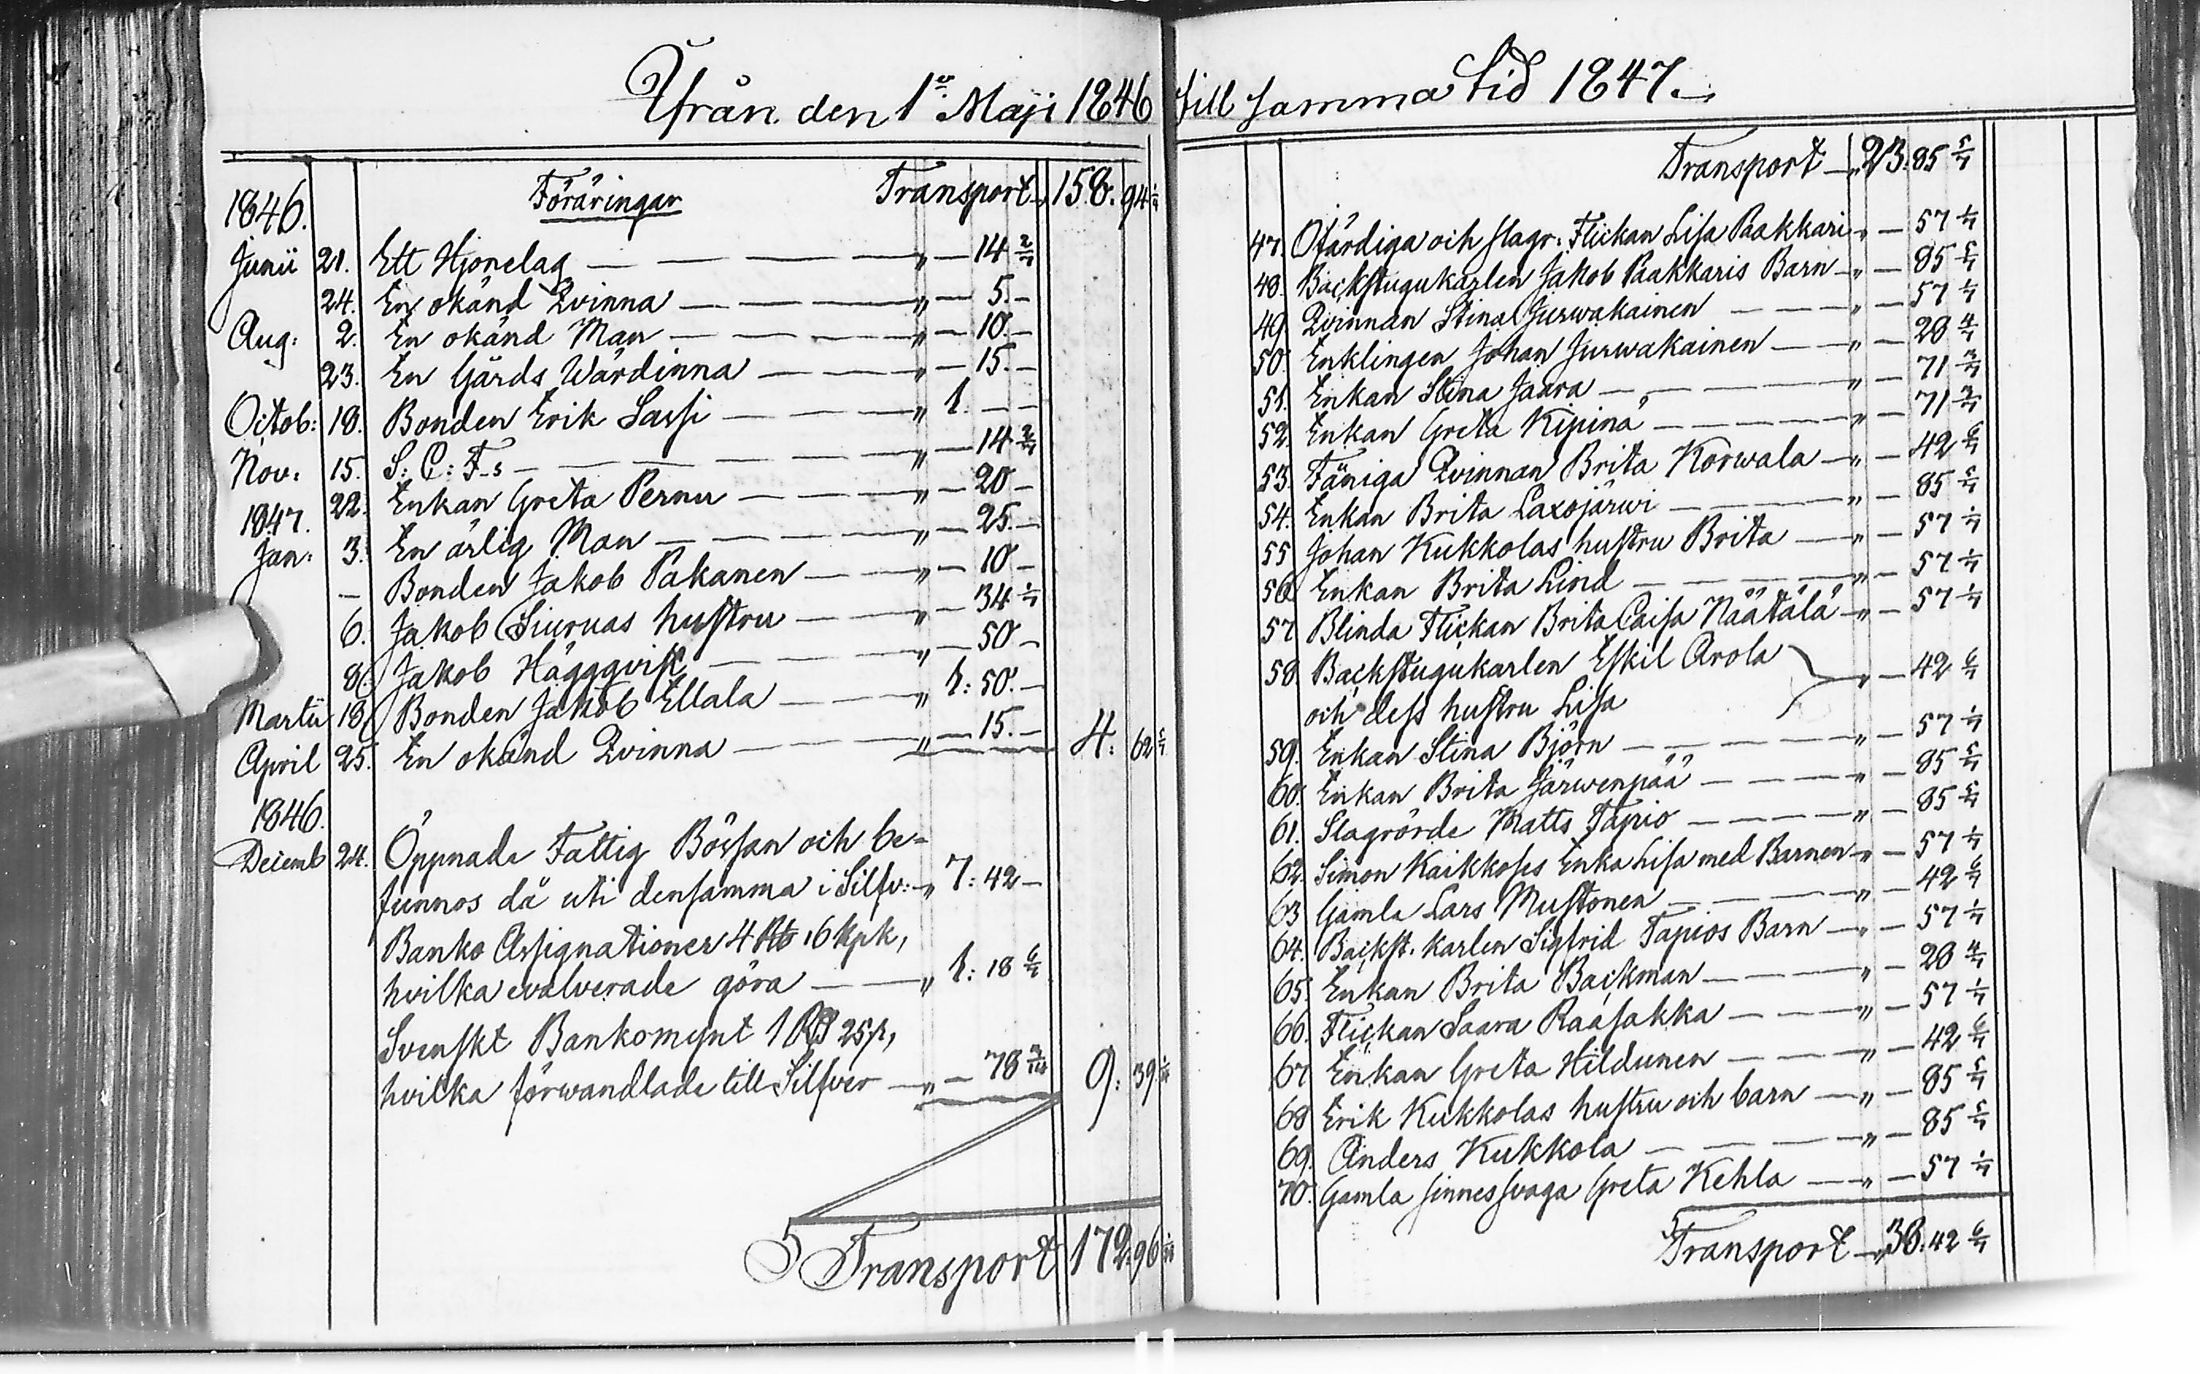 Ifrån den 1ª Maji 1846
1846. Föräringar Transport " 158. 94 2/7
Junii 21. Ett Hjonelag " — 14 2/7
24. En okänd Qvinna " — 5. —
Aug: 2. En okänd Man " — 10. —
23. En Gårds Wärdinna " — 15. —
Octob: 18. Bonden Erik Lassi " 1. — —
Nov: 15. S: C: F—s " — 14 2/7
22. Enkan Greta Pernu " — 20 —
1847.
Jan: 3. En ärlig Man " — 25. —
— Bonden Jakob Pakanen " — 10 —
6. Jakob Siuruas hustru " — 34 2/7
8. Jakob Häggqvist " — 50 —
Martii 18. Bonden Jakob Ellala " 1: 50. —
April 25. En okänd Qvinna " — 15. — 4: 62 6/7
1846.
Decemb 24. Öppnade Fattig Bössan och be-
funnos då uti densamma i Silfv: " 7: 42 —
Banko Assignationer 4 Rb 16 Kpk,
hvilka evalverade göra " 1: 18 6/7
Svenskt Bankomynt 1 Rd 25 s,
hvilka förwandlade till Silfver " — 78 3/14 9: 39 1/14
S Transport 172. 96
till samma tid 1847.
Transport " 23. 85 5/7
47. Ofärdiga och slagr: Flickan Lisa Paakkari " — 57 1/7
48. Backstugukarlen Jakob Paakkaris Barn " — 85 5/7
49. Qvinnan Stina Jurwakainen " — 57 1/7
50. Enklingen Johan Jurwakainen " — 28 4/7
51. Enkan Stina Jaara " — 71 3/7
52. Enkan Greta Kipinä " — 71 3/7
53. Fåniga Qvinnan Brita Korwala " — 42 6/7
54. Enkan Brita Laxojärwi " — 85 5/7
55. Johan Kukkolas hustru Brita " — 57 1/7
56. Enkan Brita Lind " — 57 1/7
57. Blinda Flickan Brita Caisa Näätälä " — 57 1/7
58. Backstugukarlen Eskil Arola
och dess hustru Lisa " — 42 6/7
59. Enkan Stina Björn " — 57 1/7
60. Enkan Brita Järwenpää " — 85 5/7
61. Slagrörde Matts Tapio " — 85 5/7
62. Simon Kaikkoses Enka Lisa med Barnen " — 57 1/7
63. Gamla Lars Mustonen " — 42 6/7
64. Backst. karlen Sigfrid Tapios Barn " — 57 1/7
65. Enkan Brita Backman " — 28 4/7
66. Flickan Saara Raasakka " — 57 1/7
67. Enkan Greta Hildunen " — 42 6/7
68. Erik Kukkolas hustru och barn " — 85 5/7
69. Anders Kukkola " — 85 5/7
70. Gamla sinnessvaga Greta Kehla " — 57 1/7
Transport " 38. 42 6/7